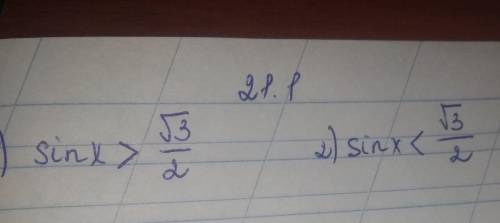 21.1
) sin x > √3/2 2) sin x < √3/2